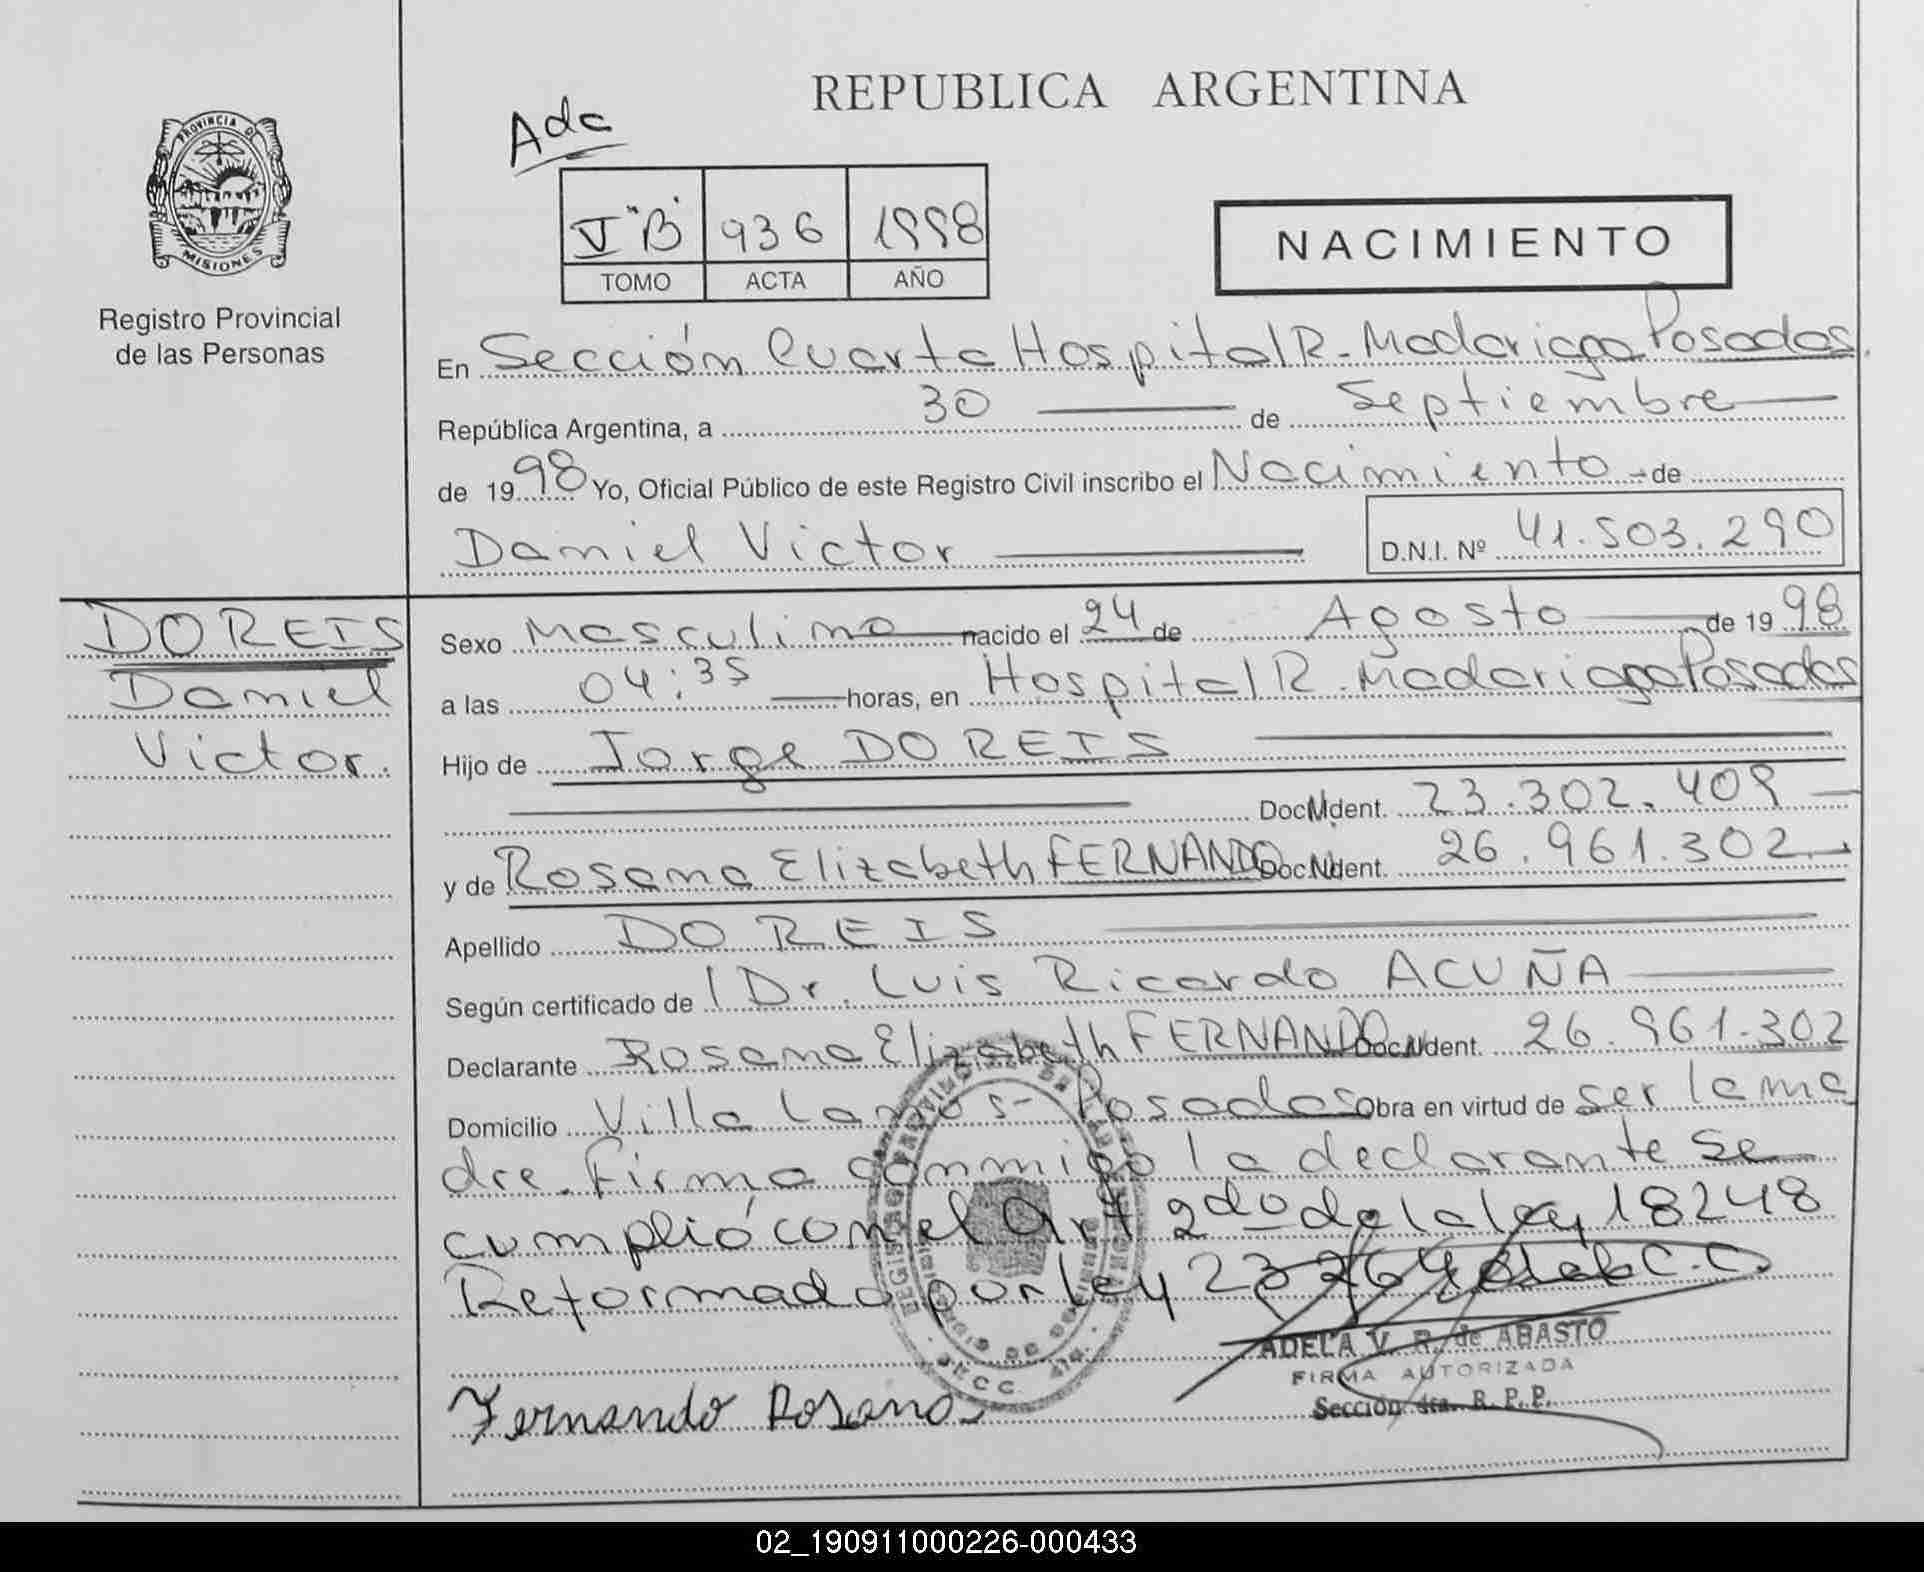 REPUBLICA ARGENTINA
Ada
PROVINCIA D
MISIONES
Registro Provincial
de las Personas
V "B" 936 1998
TOMO ACTA AÑO
NACIMIENTO
En Sección Cuarta Hospital R. Madariaga Posadas.
República Argentina, a 30 de Septiembre
de 1998 Yo, Oficial Público de este Registro Civil inscribo el Nacimiento de
Daniel Victor D.N.I. Nº 41.503.290
DO REIS
Daniel
Victor.
Sexo Masculino nacido el 24 de Agosto de 1998
a las 04:35 horas, en Hospital R. Madariaga Posadas
Hijo de Jorge DO REIS
Doc. Ident. 23.302.409
y de Rosana Elizabeth FERNANDO Doc. Ident. 26.961.302
Apellido DO REIS
Según certificado de l Dr. Luis Ricardo ACUÑA
Declarante Rosana Elizabeth FERNANDO Doc. Ident. 26.961.302
Domicilio Villa Lanus - Posadas Obra en virtud de ser la ma
dre. Firma conmigo la declarante Se
cumplió con el Art 2do de la ley 18248
Reformado por ley 23264 del C.C.
ADELA V. R. de ABASTO
FIRMA AUTORIZADA
Sección 4ta. R. P. P.
Fernando Rosana
02_190911000226-000433